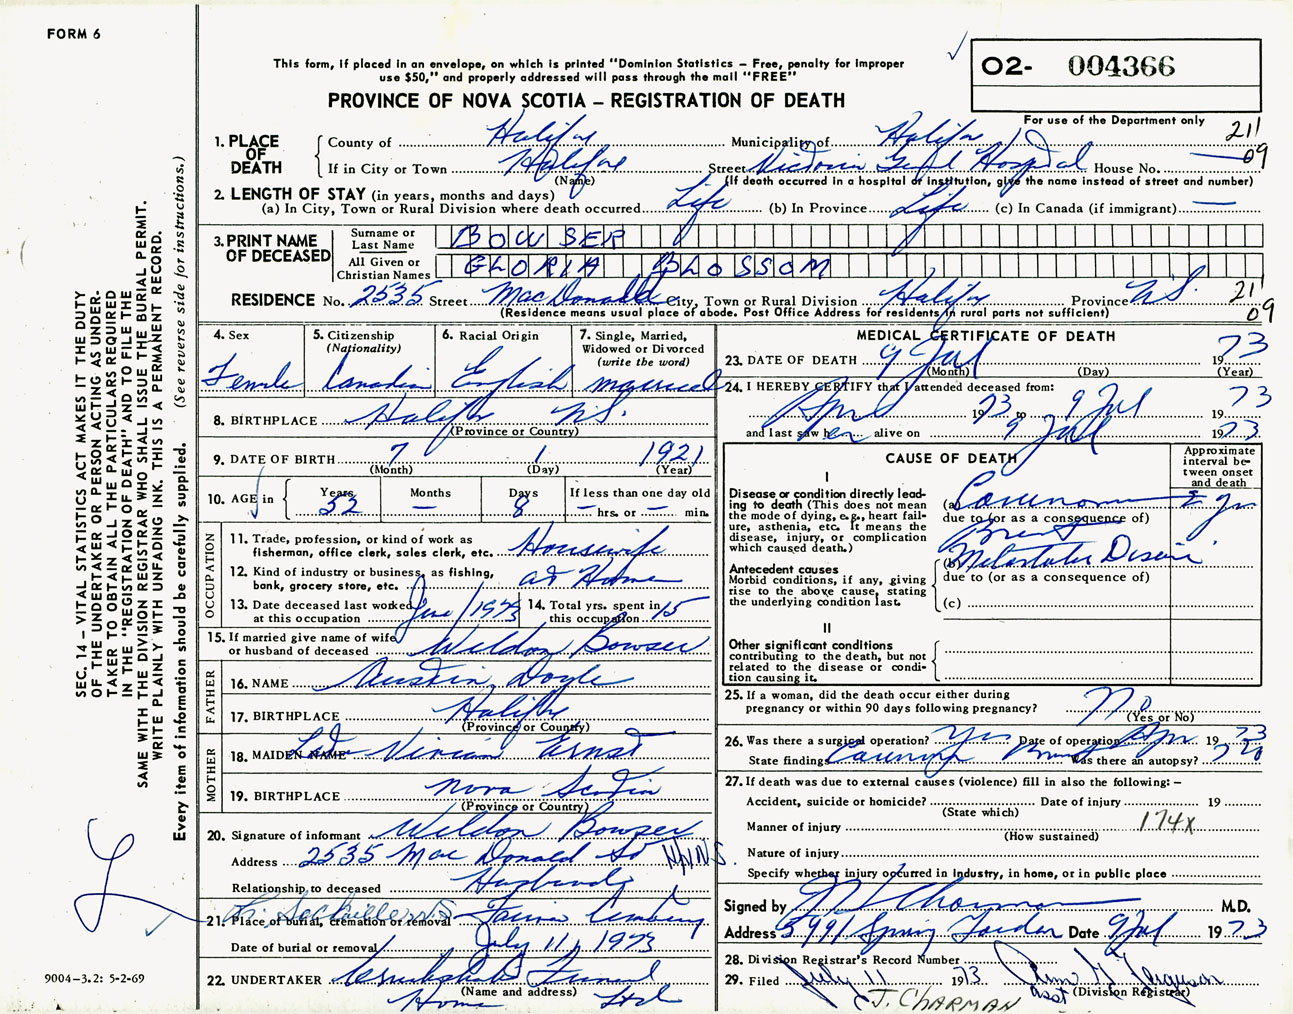 FORM 6
This form, if placed in an envelope, on which is printed "Dominion Statistics – Free, penalty for improper
use $50," and properly addressed will pass through the mail "FREE"
O2- 004366
PROVINCE OF NOVA SCOTIA – REGISTRATION OF DEATH
For use of the Department only
211
09
1. PLACE OF DEATH
County of Halifax Municipality of Halifax
If in City or Town Halifax Street Victoria Genl Hospital House No. —
(Name) (If death occurred in a hospital or institution, give the name instead of street and number)
2. LENGTH OF STAY (in years, months and days)
(a) In City, Town or Rural Division where death occurred Life (b) In Province Life (c) In Canada (if immigrant) —
3. PRINT NAME OF DECEASED
Surname or Last Name BOWSER
All Given or Christian Names GLORIA BLOSSOM
RESIDENCE No. 2535 Street MacDonald City, Town or Rural Division Halifax Province N.S. 211
09
(Residence means usual place of abode. Post Office Address for residents in rural parts not sufficient)
4. Sex
Female
5. Citizenship
(Nationality)
Canadian
6. Racial Origin
English
7. Single, Married,
Widowed or Divorced
(write the word)
married
8. BIRTHPLACE Halifax N.S.
(Province or Country)
9. DATE OF BIRTH 7 1 1921
(Month) (Day) (Year)
10. AGE in Years 52 Months — Days 8 If less than one day old
— hrs. or — min.
OCCUPATION
11. Trade, profession, or kind of work as
fisherman, office clerk, sales clerk, etc. Housewife
12. Kind of industry or business, as fishing,
bank, grocery store, etc. at Home
13. Date deceased last worked
at this occupation June/1973
14. Total yrs. spent in
this occupation 15
15. If married give name of wife
or husband of deceased Weldon Bowser
FATHER
16. NAME Austin Doyle
17. BIRTHPLACE Halifax
(Province or Country)
MOTHER
18. MAIDEN NAME Vivian Ernst
19. BIRTHPLACE Nova Scotia
(Province or Country)
20. Signature of informant Weldon Bowser
Address 2535 Mac Donald St
Relationship to deceased Husband
21. Place of burial, cremation or removal
Date of burial or removal July 11, 1973
22. UNDERTAKER Cruikshanks Funeral
(Name and address)
Home Ltd
MEDICAL CERTIFICATE OF DEATH
23. DATE OF DEATH 9 Jul 1973
(Month) (Day) (Year)
24. I HEREBY CERTIFY that I attended deceased from:
Apr 1973 to 9 Jul 1973
and last saw her alive on 9 Jul 1973
CAUSE OF DEATH
Approximate
interval be-
tween onset
and death
I
Disease or condition directly lead-
ing to death (This does not mean
the mode of dying, e.g., heart fail-
ure, asthenia, etc. It means the
disease, injury, or complication
which caused death.)
(a) Carcinoma
due to (or as a consequence of)
Breast
(b) Metastatic Disease
due to (or as a consequence of)
Antecedent causes
Morbid conditions, if any, giving
rise to the above cause, stating
the underlying condition last.
(c)
II
Other significant conditions
contributing to the death, but not
related to the disease or condi-
tion causing it.
25. If a woman, did the death occur either during
pregnancy or within 90 days following pregnancy? No
(Yes or No)
26. Was there a surgical operation? Yes Date of operation Apr 1973
State findings Carcinoma Breast Was there an autopsy? no
27. If death was due to external causes (violence) fill in also the following:–
Accident, suicide or homicide? Date of injury 19
(State which)
Manner of injury 174X
(How sustained)
Nature of injury
Specify whether injury occurred in industry, in home, or in public place
Signed by Charman M.D.
Address 5991 Spring Garden Date 9 Jul 1973
28. Division Registrar's Record Number
29. Filed July 11 1973 Ferguson
Asst (Division Registrar)
J. CHARMAN
SEC. 14 – VITAL STATISTICS ACT MAKES IT THE DUTY
OF THE UNDERTAKER OR PERSON ACTING AS UNDER-
TAKER TO OBTAIN ALL THE PARTICULARS REQUIRED
IN THE "REGISTRATION OF DEATH" AND TO FILE THE
SAME WITH THE DIVISION REGISTRAR WHO SHALL ISSUE THE BURIAL PERMIT.
WRITE PLAINLY WITH UNFADING INK. THIS IS A PERMANENT RECORD.
Every item of information should be carefully supplied. (See reverse side for instructions.)
9004–3.2: 5-2-69